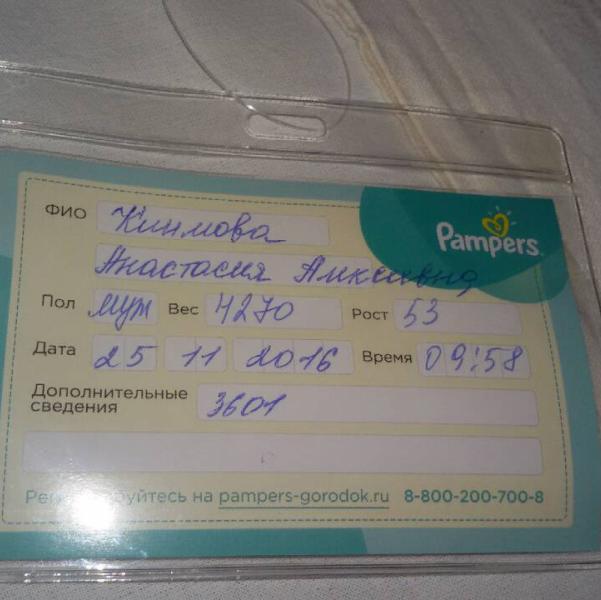 ФИО
Pampers
Анастасия
Пол муж Вес 4270 Рост 53
Дата 25 11 2016 Время 09:58
Дополнительные
сведения 3601
на pampers-gorodok.ru 8-800-200-700-8